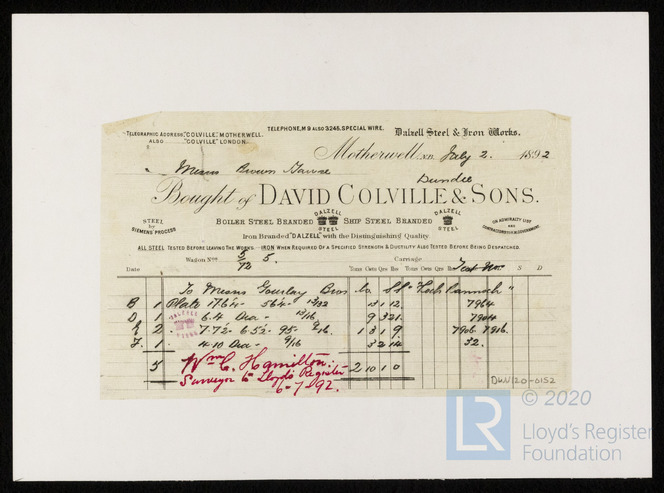 TELEPHONE, No 9 ALSO 3245, SPECIAL WIRE.
TELEGRAPHIC ADDRESS, "COLVILLE" MOTHERWELL.
ALSO "COLVILLE" LONDON.
Dalzell Steel & Iron Works.
Motherwell, N.B. July 2. 1892
Messrs Brown
Dundee
Bought of DAVID COLVILLE & SONS.
STEEL by SIEMENS' PROCESS
BOILER STEEL BRANDED DALZELL STEEL SHIP STEEL BRANDED DALZELL STEEL
ON ADMIRALTY LIST AND CONTRACTORS TO H.M. GOVERNMENT.
Iron Branded "DALZELL" with the Distinguishing Quality.
ALL STEEL TESTED BEFORE LEAVING THE WORKS. IRON WHEN REQUIRED OF A SPECIFIED STRENGTH & DUCTILITY ALSO TESTED BEFORE BEING DESPATCHED.
Wagon Nos 5/72 5. Carriage
Date Tons Cwts Qrs lbs Tons Cwts Qrs lbs Test Nos S D
To Messrs Gourlay Bros Co SS "Loch Rannoch"
B 1 Plate 17.6 56 13/32 13 1 12 7964
D 1 6.4 Dia 13/16 9 3 21 7904
2 7.7½ 6.5½ 95 9/16 1 3 1 9 7906 7916
F 1 4.10 Dia 9/16 3 2 14 32
DALZELL STEEL
5 Wm C. Hamilton. 2 10 1 0
Surveyor to Lloyd's Register
6-7-92.
DUN/20-0152
LR © 2020
Lloyd's Register
Foundation